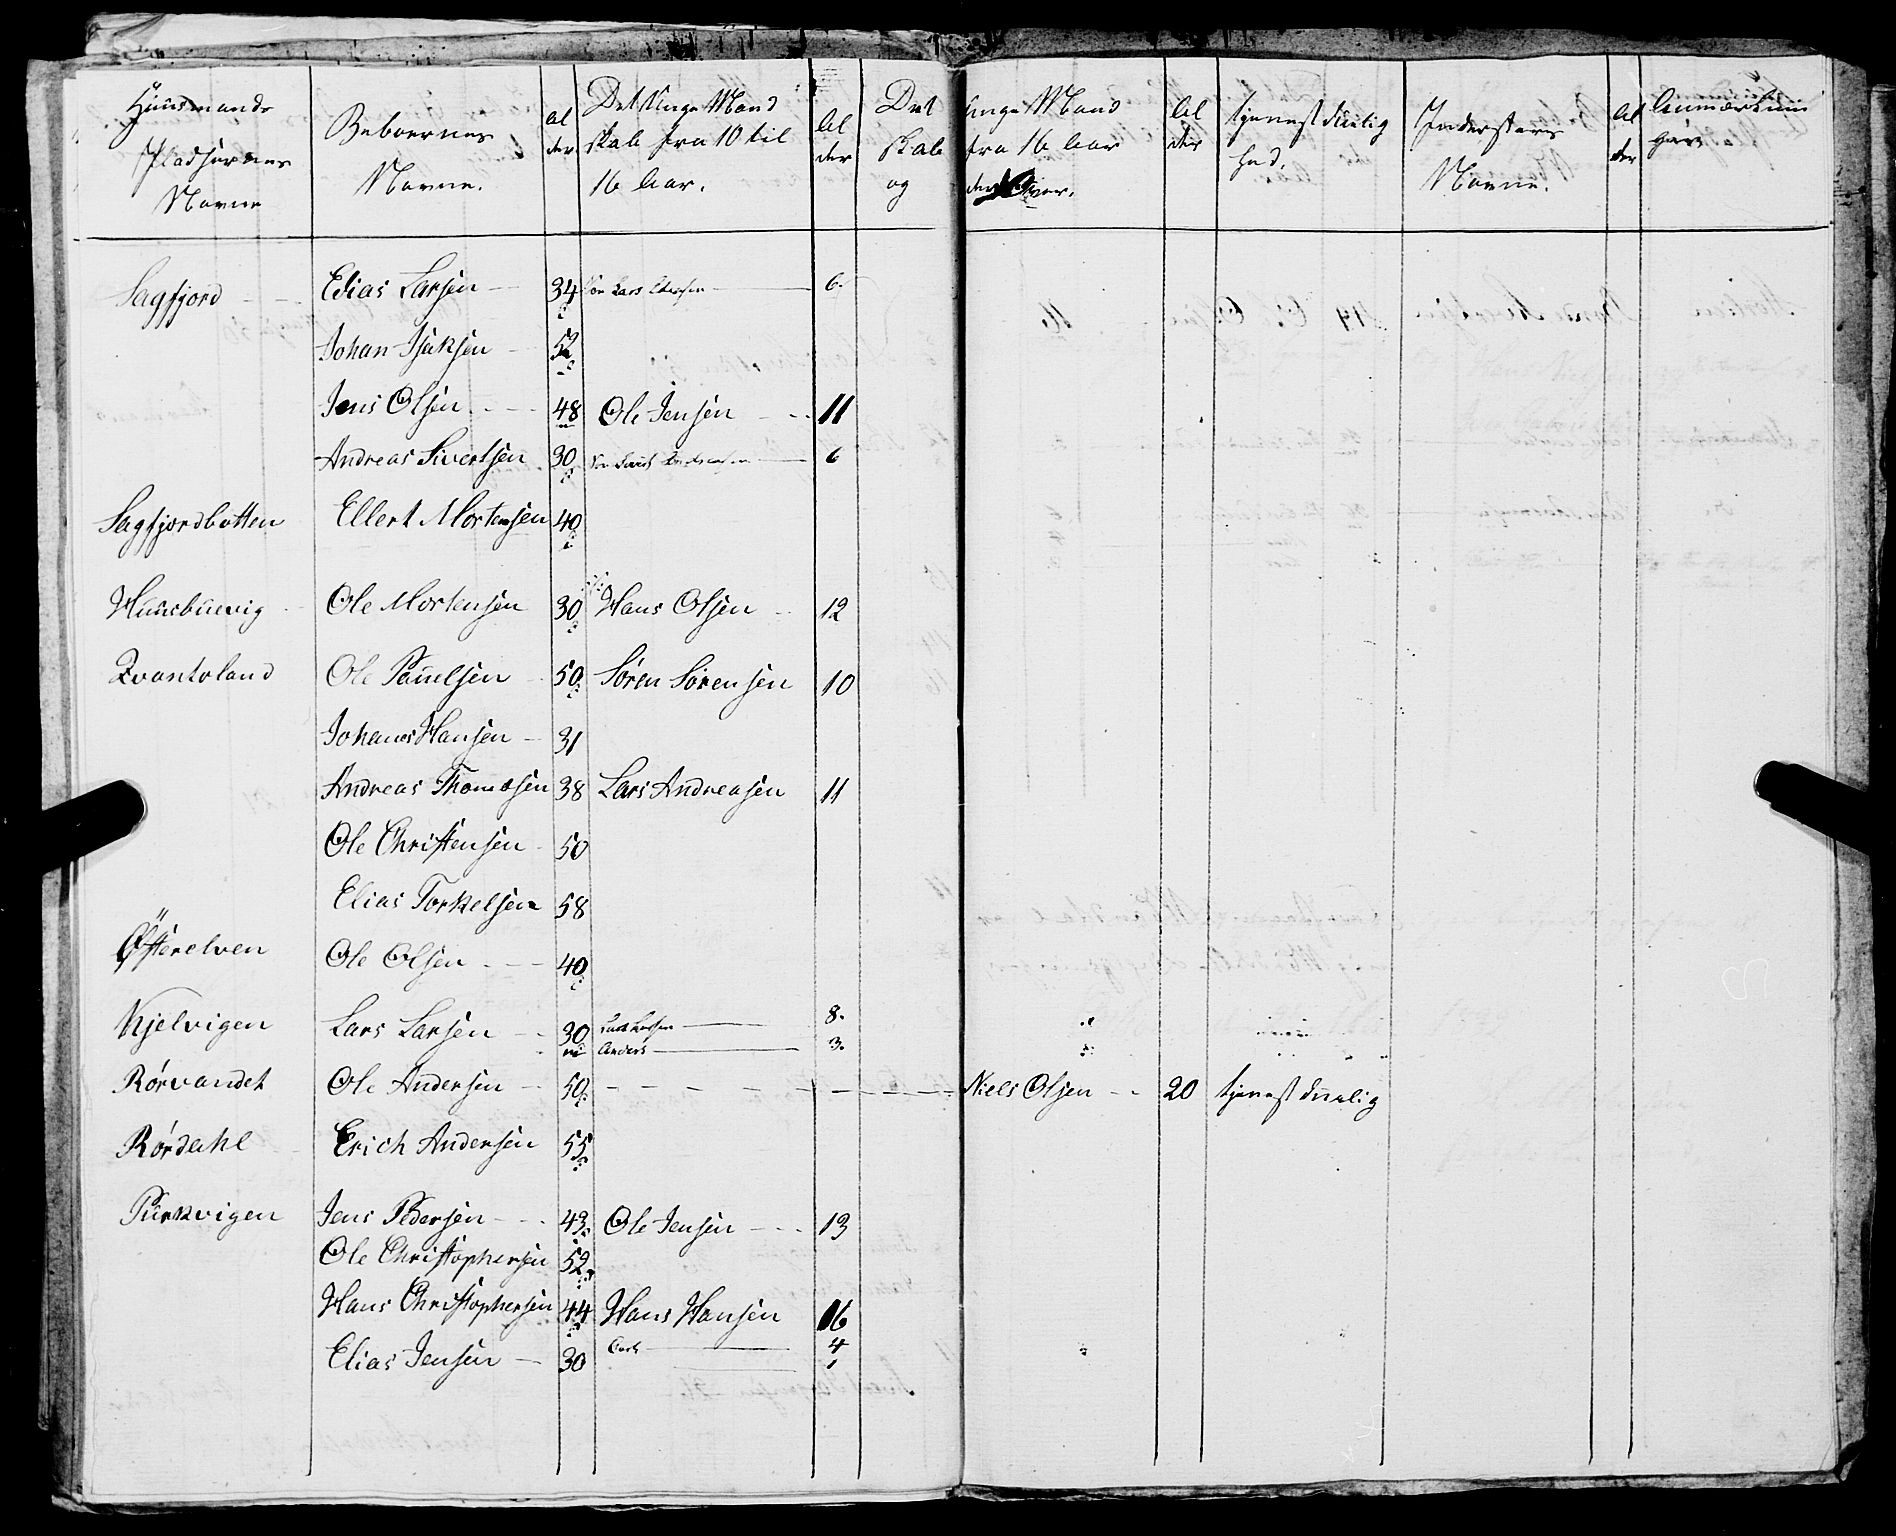 Huusmands Pladsernes Navne | Beboernes Navne. | Al der | Det Unge Mand skab fra 10 til 16 Aar. | Al der | Det Unge Mand skab fra 16 Aar og derOver. | Al der | tjenestduelig hed. | Indersters Navne. | Al der | Anmærknin ger
Sagfjord | Elias Larsen | 34 | Søn Lars Eliassen | 6.
Johan Isaksen | 52
Jens Olsen | 48 | Ole Jensen | 11
Andreas Sivertsen | 30 | Søn Sivert Andreassen | 6
Sagfjordbotten | Ellert Mortensen | 40
Huusbuevig | Ole Mortensen | 30 | Hans Olsen | 12
Qvantoland | Ole Pauelsen | 50 | Sören Sörensen | 10
Johanes Hansen | 31
Andreas Thomasen | 38 | Lars Andreasen | 11
Ole Christensen | 50
Elias Torkelsen | 58
Österelven | Ole Olsen | 40
Kjelvigen | Lars Larsen | 30 | Lars Larsen | 8.
Anders | 3.
Rørvandet | Ole Andersen | 50 | Niels Olsen | 20 | tjenestduelig
Rørdahl | Erich Andersen | 55
Purkvigen | Jens Pedersen | 43 | Ole Jensen | 13
Ole Christophersen | 52
Hans Christophersen | 44 | Hans Hansen | 16
4
Elias Jensen | 30 | 1